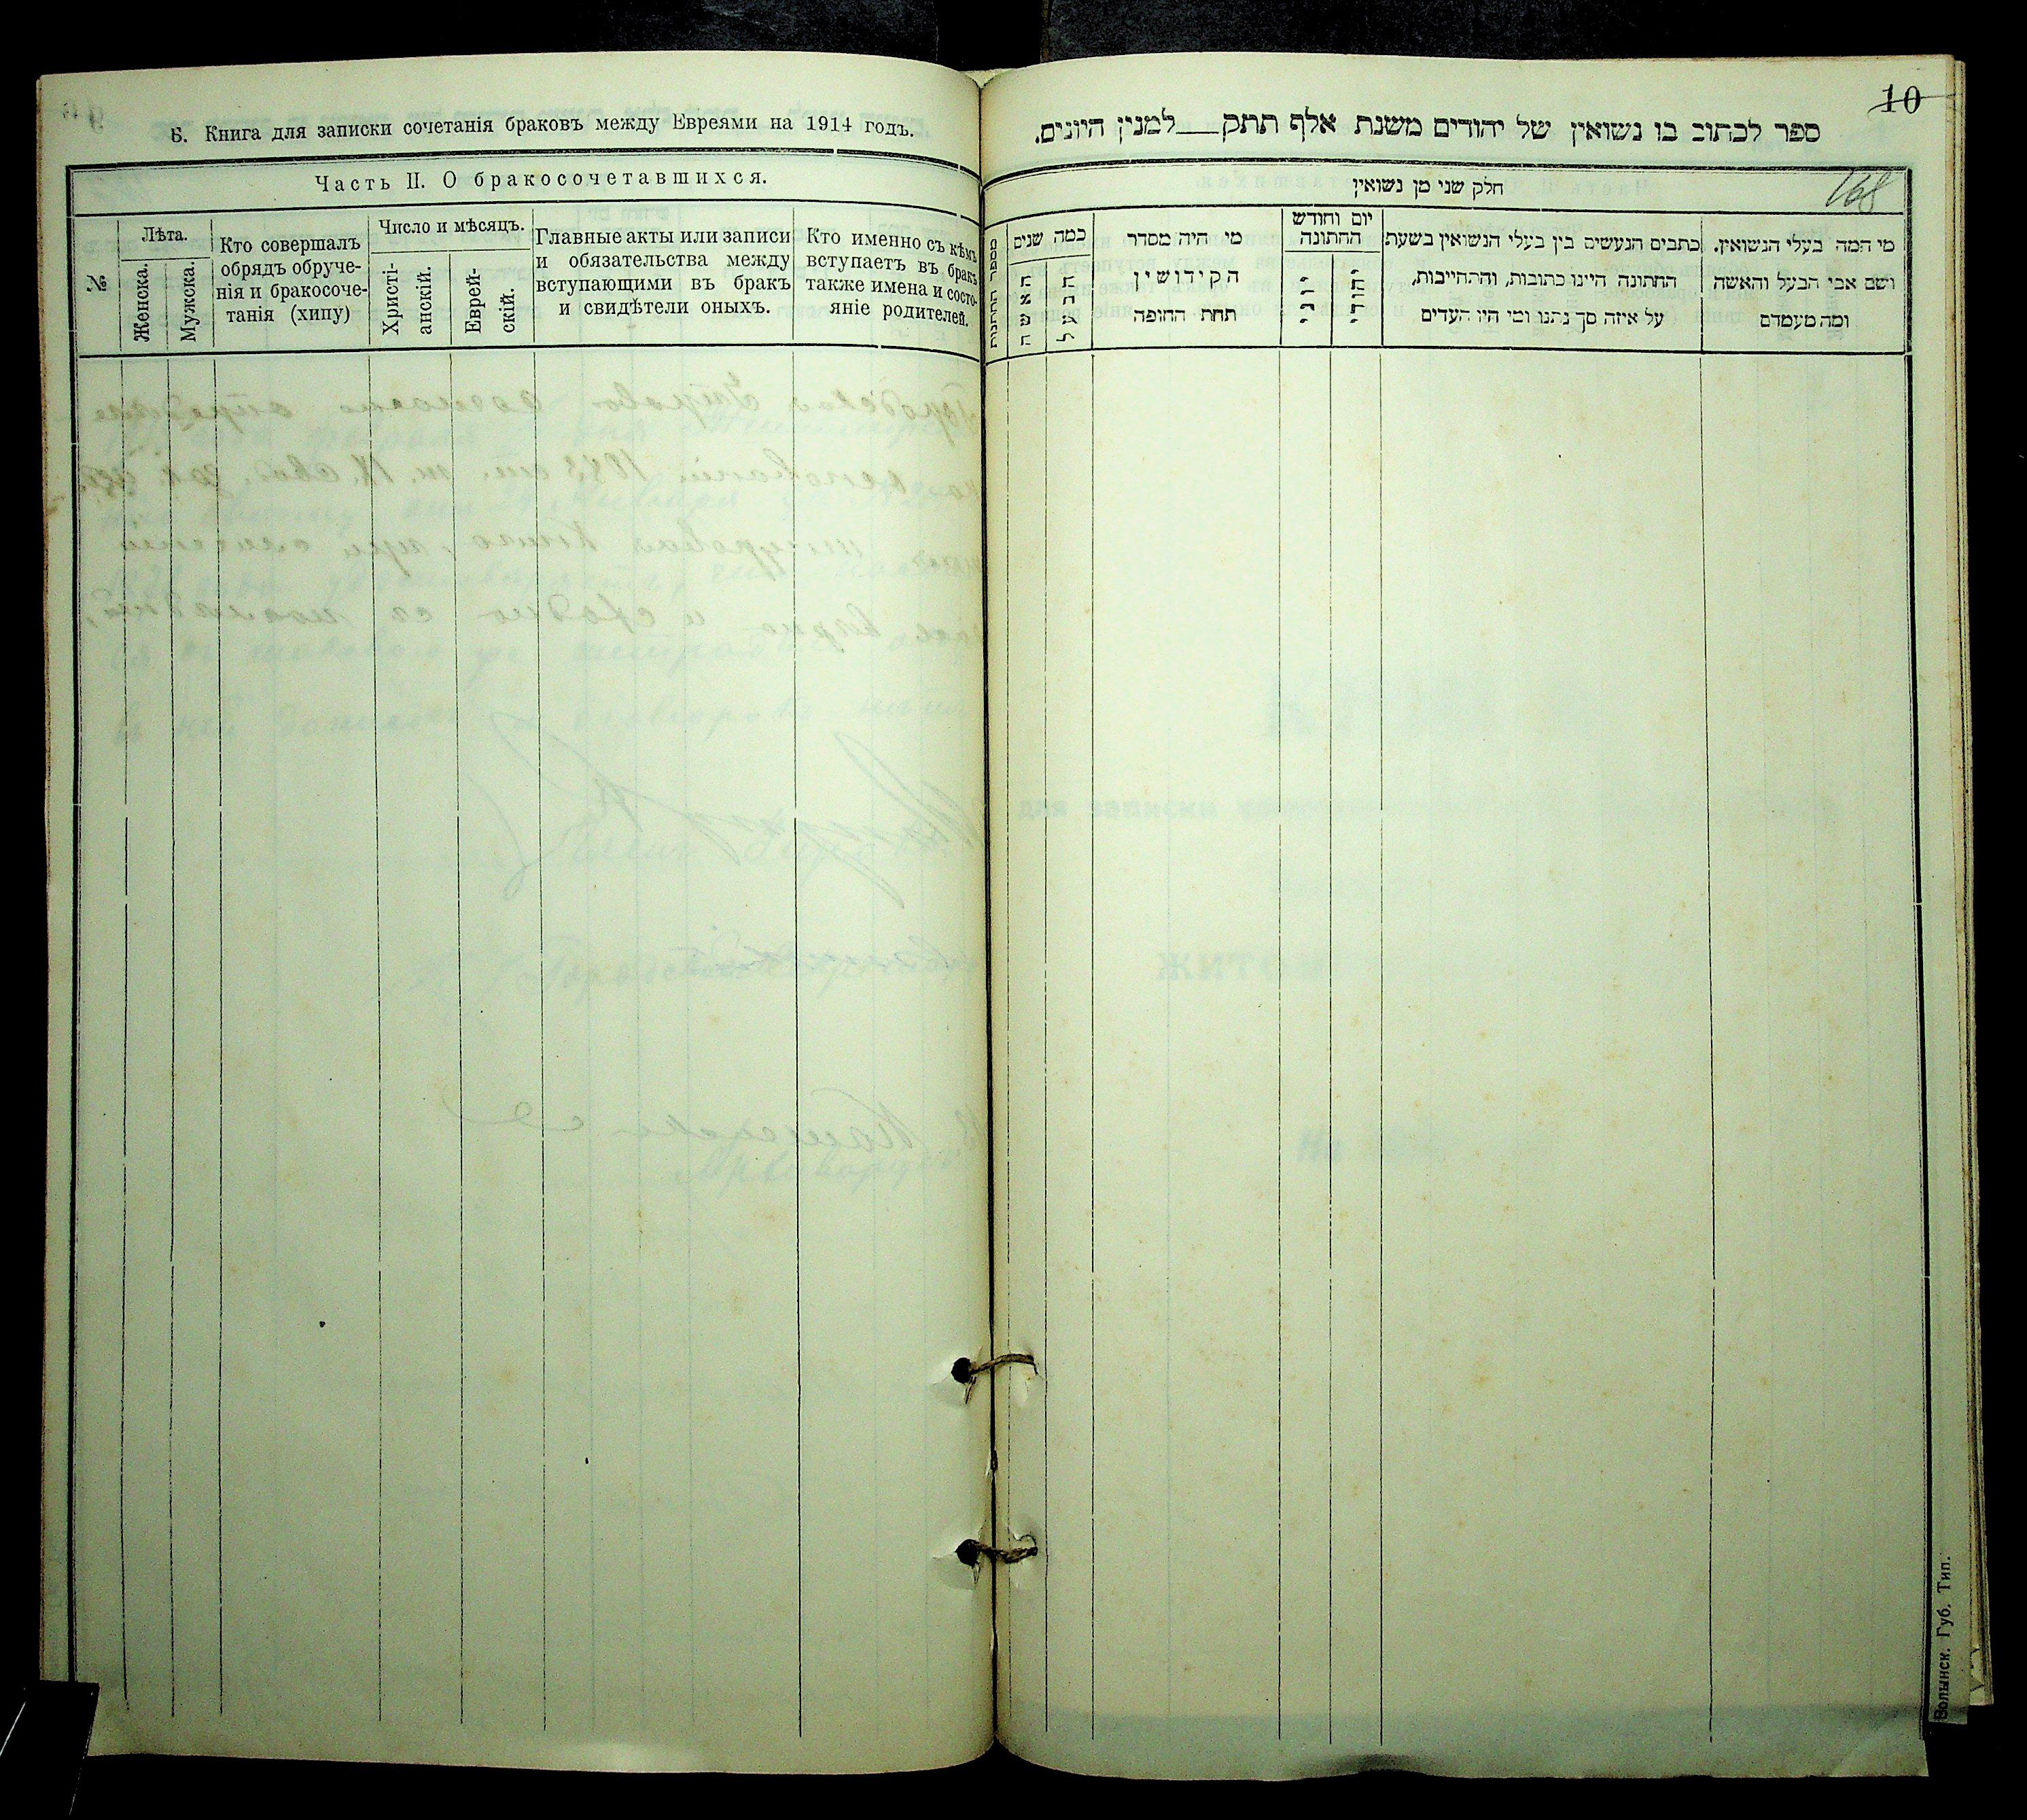 Б. Книга для записки сочетанія браковъ между Евреями на 1914 годъ.
Часть II. О бракосочетавшихся.
№
Лѣта.
Женска.
Мужска.
Кто совершалъ
обрядъ обруче-
нія и бракосоче-
танія (хипу)
Число и мѣсяцъ.
Христі-
анскій.
Еврей-
скій.
Главные акты или записи
и обязательства между
вступающими въ бракъ
и свидѣтели оныхъ.
Кто именно съ кѣмъ
вступаетъ въ бракъ
также имена и состо-
яніе родителей.
10
ספר לכתוב בו נשואין של יהודים משנת אלף תתק___למנין היונים.
168
חלק שני מן נשואין
מספר החתונות
כמה שנים
האשה
הבעל
מי היה מסדר
הקידושין
תחת החופה
יום וחודש
החתונה
יוני
יהודי
כתבים הנעשים בין בעלי הנשואין בשעת
החתונה היינו כתובות, והתחייבות,
על איזה סך נתנו ומי היו העדים
מי המה בעלי הנשואין.
ושם אבי הבעל והאשה
ומה מעמדם
Волынск. Губ. Тип.